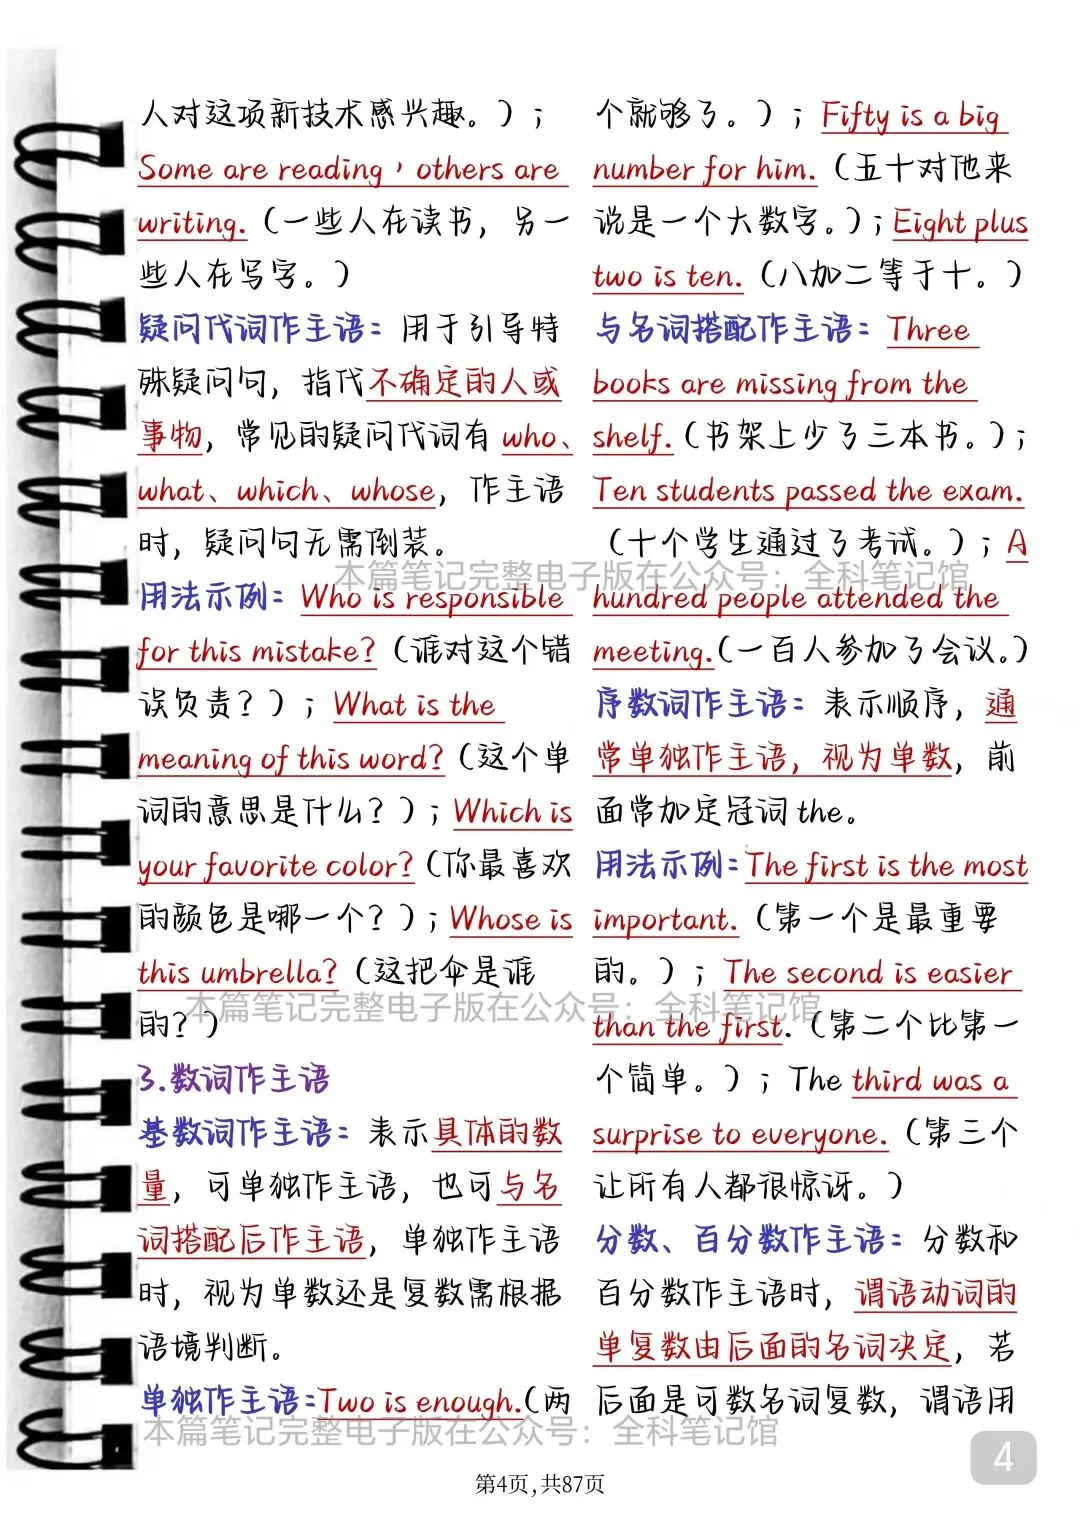 人对这项新技术感兴趣。）；
Some are reading，others are
writing.（一些人在读书，另一
些人在写字。）
疑问代词作主语：用于引导特
殊疑问句，指代不确定的人或
事物，常见的疑问代词有 who、
what、which、whose，作主语
时，疑问句无需倒装。
用法示例：Who is responsible
for this mistake?（谁对这个错
误负责？）；What is the
meaning of this word?（这个单
词的意思是什么？）；Which is
your favorite color?（你最喜欢
的颜色是哪一个？）；Whose is
this umbrella?（这把伞是谁
的？）
3.数词作主语
基数词作主语：表示具体的数
量，可单独作主语，也可与名
词搭配后作主语，单独作主语
时，视为单数还是复数需根据
语境判断。
单独作主语：Two is enough.（两
个就够了。）；Fifty is a big
number for him.（五十对他来
说是一个大数字。）；Eight plus
two is ten.（八加二等于十。）
与名词搭配作主语：Three
books are missing from the
shelf.（书架上少了三本书。）；
Ten students passed the exam.
（十个学生通过了考试。）；A
hundred people attended the
meeting.（一百人参加了会议。）
序数词作主语：表示顺序，通
常单独作主语，视为单数，前
面常加定冠词 the。
用法示例：The first is the most
important.（第一个是最重要
的。）；The second is easier
than the first.（第二个比第一
个简单。）；The third was a
surprise to everyone.（第三个
让所有人都很惊讶。）
分数、百分数作主语：分数和
百分数作主语时，谓语动词的
单复数由后面的名词决定，若
后面是可数名词复数，谓语用
本篇笔记完整电子版在公众号：全科笔记馆
本篇笔记完整电子版在公众号：全科笔记馆
本篇笔记完整电子版在公众号：全科笔记馆
4
第4页,共87页